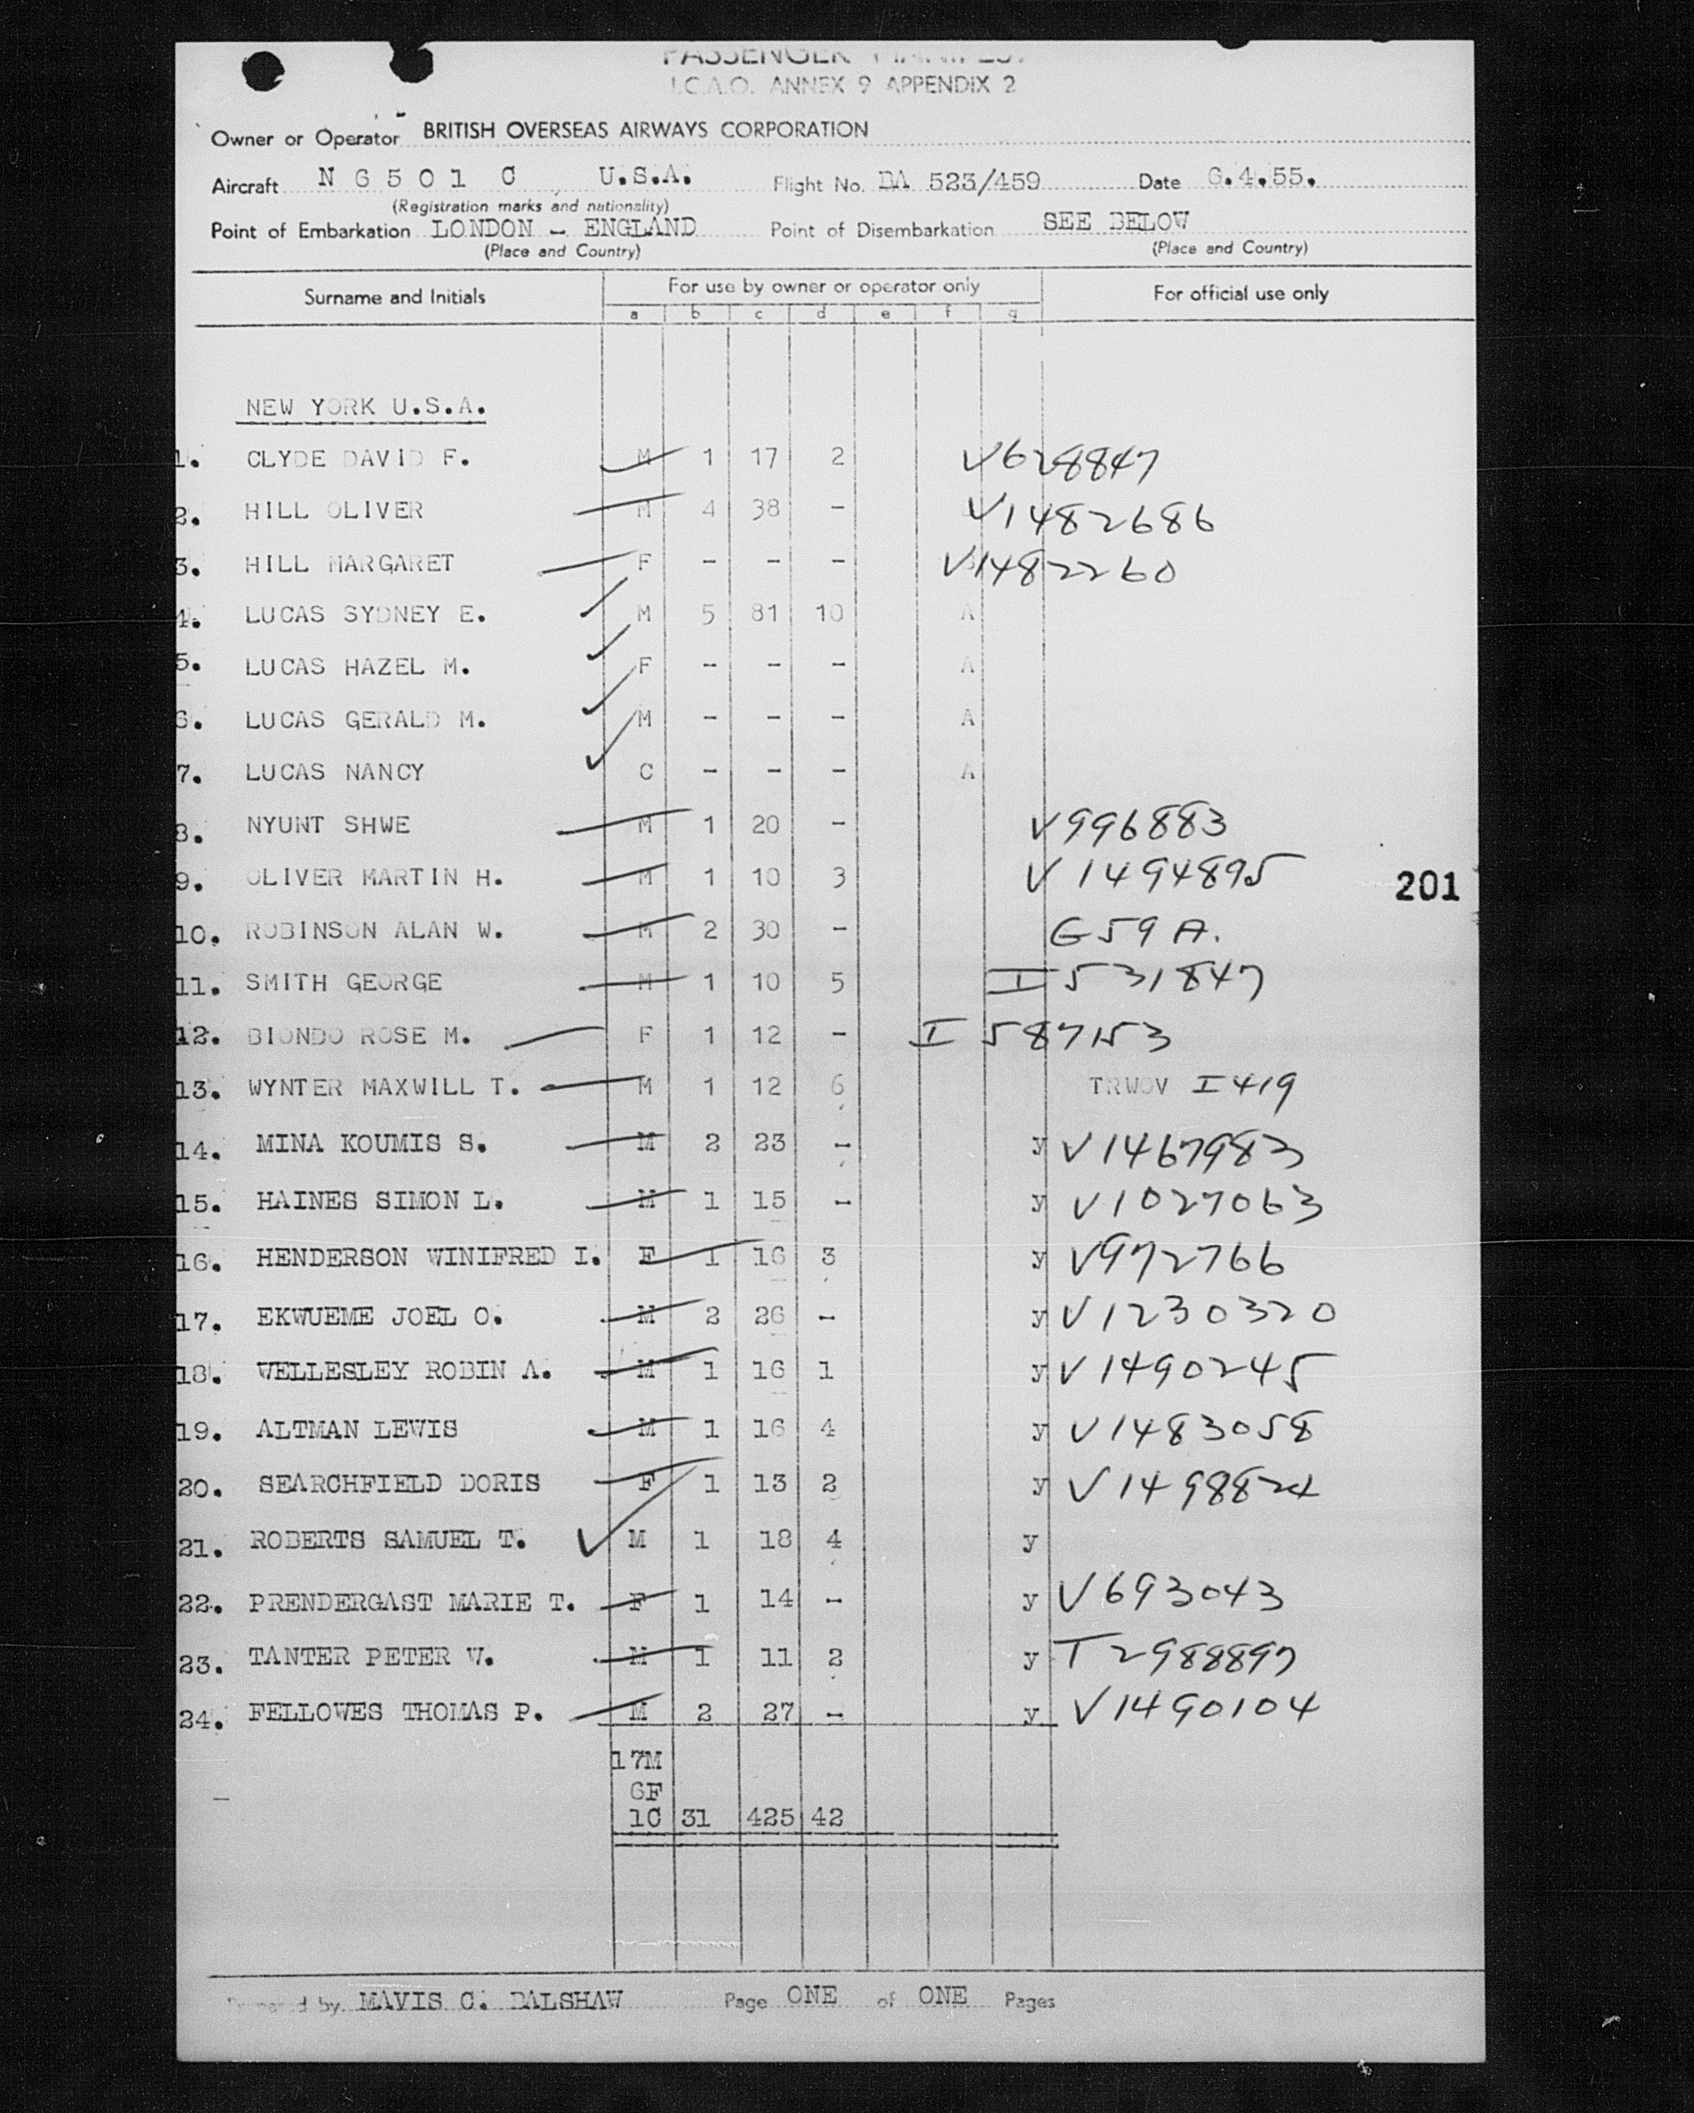 PASSENGER MANIFEST
I.C.A.O. ANNEX 9 APPENDIX 2
Owner or Operator BRITISH OVERSEAS AIRWAYS CORPORATION
Aircraft N 6 5 0 1 C U.S.A. Flight No. BA 523/459 Date 6.4.55.
(Registration marks and nationality)
Point of Embarkation LONDON - ENGLAND Point of Disembarkation SEE BELOW
(Place and Country) (Place and Country)
Surname and Initials For use by owner or operator only For official use only
a b c d e f g
NEW YORK U.S.A.
1. CLYDE DAVID F. M 1 17 2 V628847
2. HILL OLIVER M 4 38 - V1482686
3. HILL MARGARET F - - - V1482260
4. LUCAS SYDNEY E. M 5 81 10 A
5. LUCAS HAZEL M. F - - - A
6. LUCAS GERALD M. M - - - A
7. LUCAS NANCY C - - - A
8. NYUNT SHWE M 1 20 - V996883
9. OLIVER MARTIN H. M 1 10 3 V1494895
201
10. ROBINSON ALAN W. M 2 30 - G59A.
11. SMITH GEORGE M 1 10 5 I 531847
12. BIONDO ROSE M. F 1 12 - I 587153
13. WYNTER MAXWILL T. M 1 12 6 TRWOV I419
14. MINA KOUMIS S. M 2 23 - y V1467983
15. HAINES SIMON L. M 1 15 - y V1027063
16. HENDERSON WINIFRED I. F 1 16 3 y V972766
17. EKWUEME JOEL O. M 2 26 - y V1230320
18. WELLESLEY ROBIN A. M 1 16 1 y V1490245
19. ALTMAN LEWIS M 1 16 4 y V1483058
20. SEARCHFIELD DORIS F 1 13 2 y V1498824
21. ROBERTS SAMUEL T. M 1 18 4 y
22. PRENDERGAST MARIE T. F 1 14 - y V693043
23. TANTER PETER W. M 1 11 2 y T2988897
24. FELLOWES THOMAS P. M 2 27 - y V1490104
17M
6F
1C 31 425 42
Prepared by MAVIS C. BALSHAW Page ONE of ONE Pages